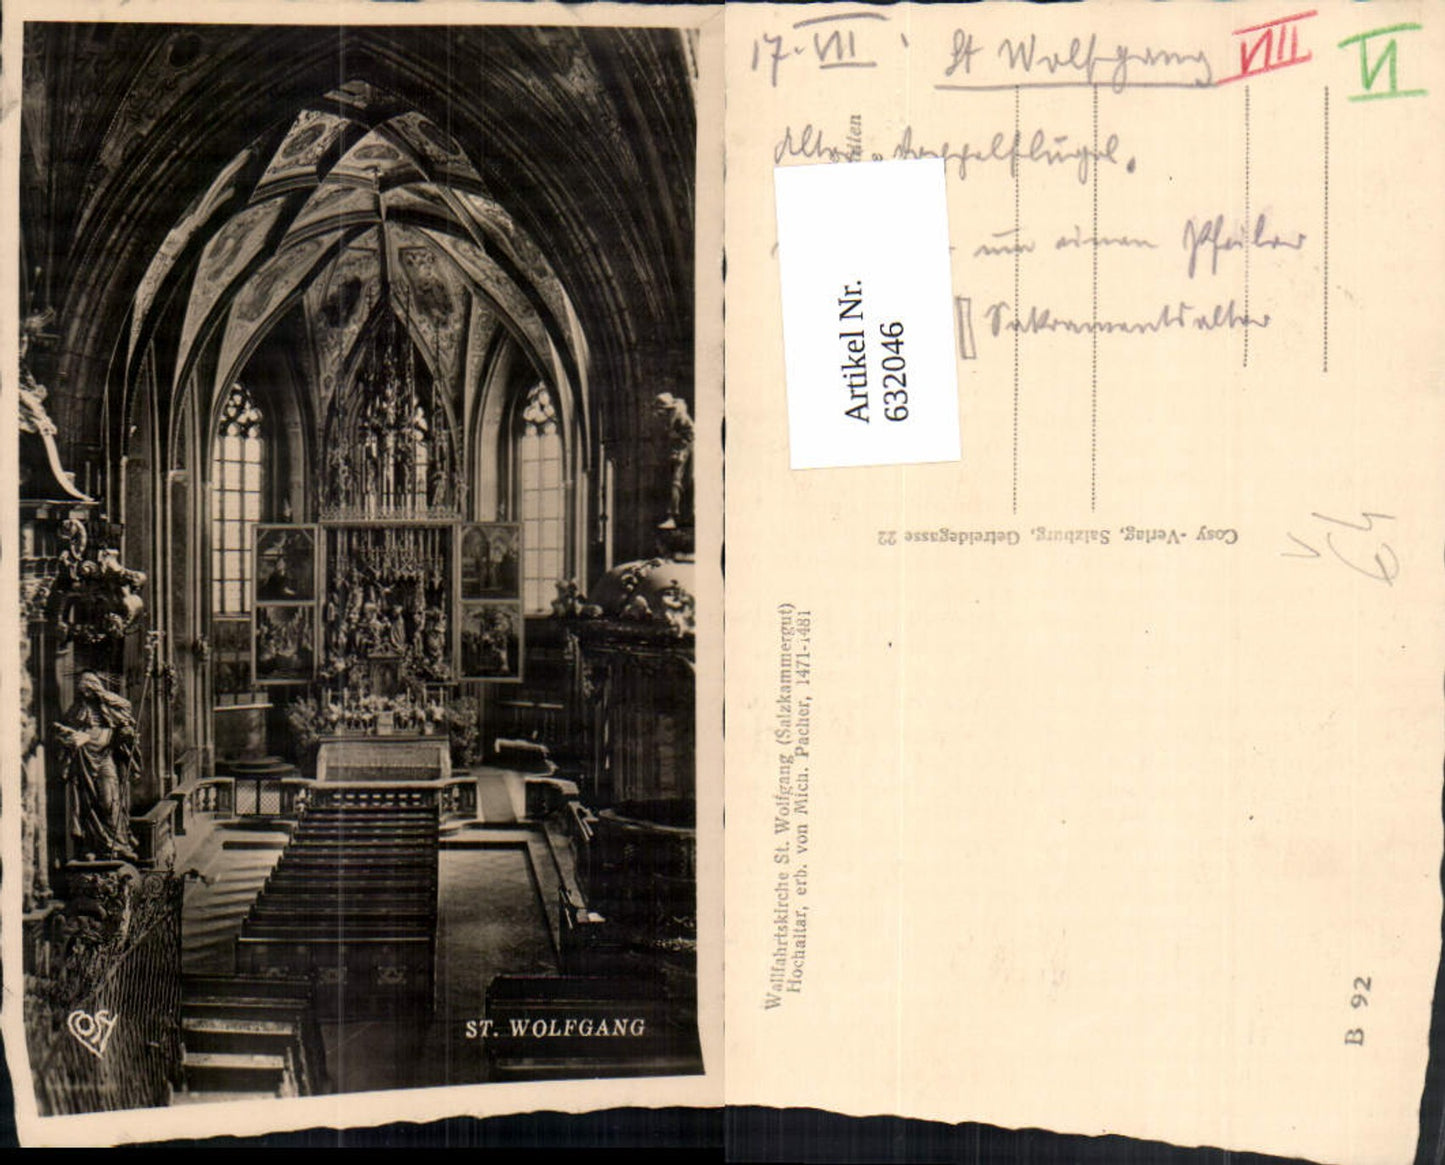 COSY
ST. WOLFGANG
17. VII
St Wolfgang
VIII
VI
Doppelflügel.
um einen Pfeiler
Sakramentsaltar
Artikel Nr.
632046
Cosy - Verlag, Salzburg, Getreidegasse 22
64
Wallfahrtskirche St. Wolfgang (Salzkammergut)
Hochaltar, erb. von Mich. Pacher, 1471-1481
B 92